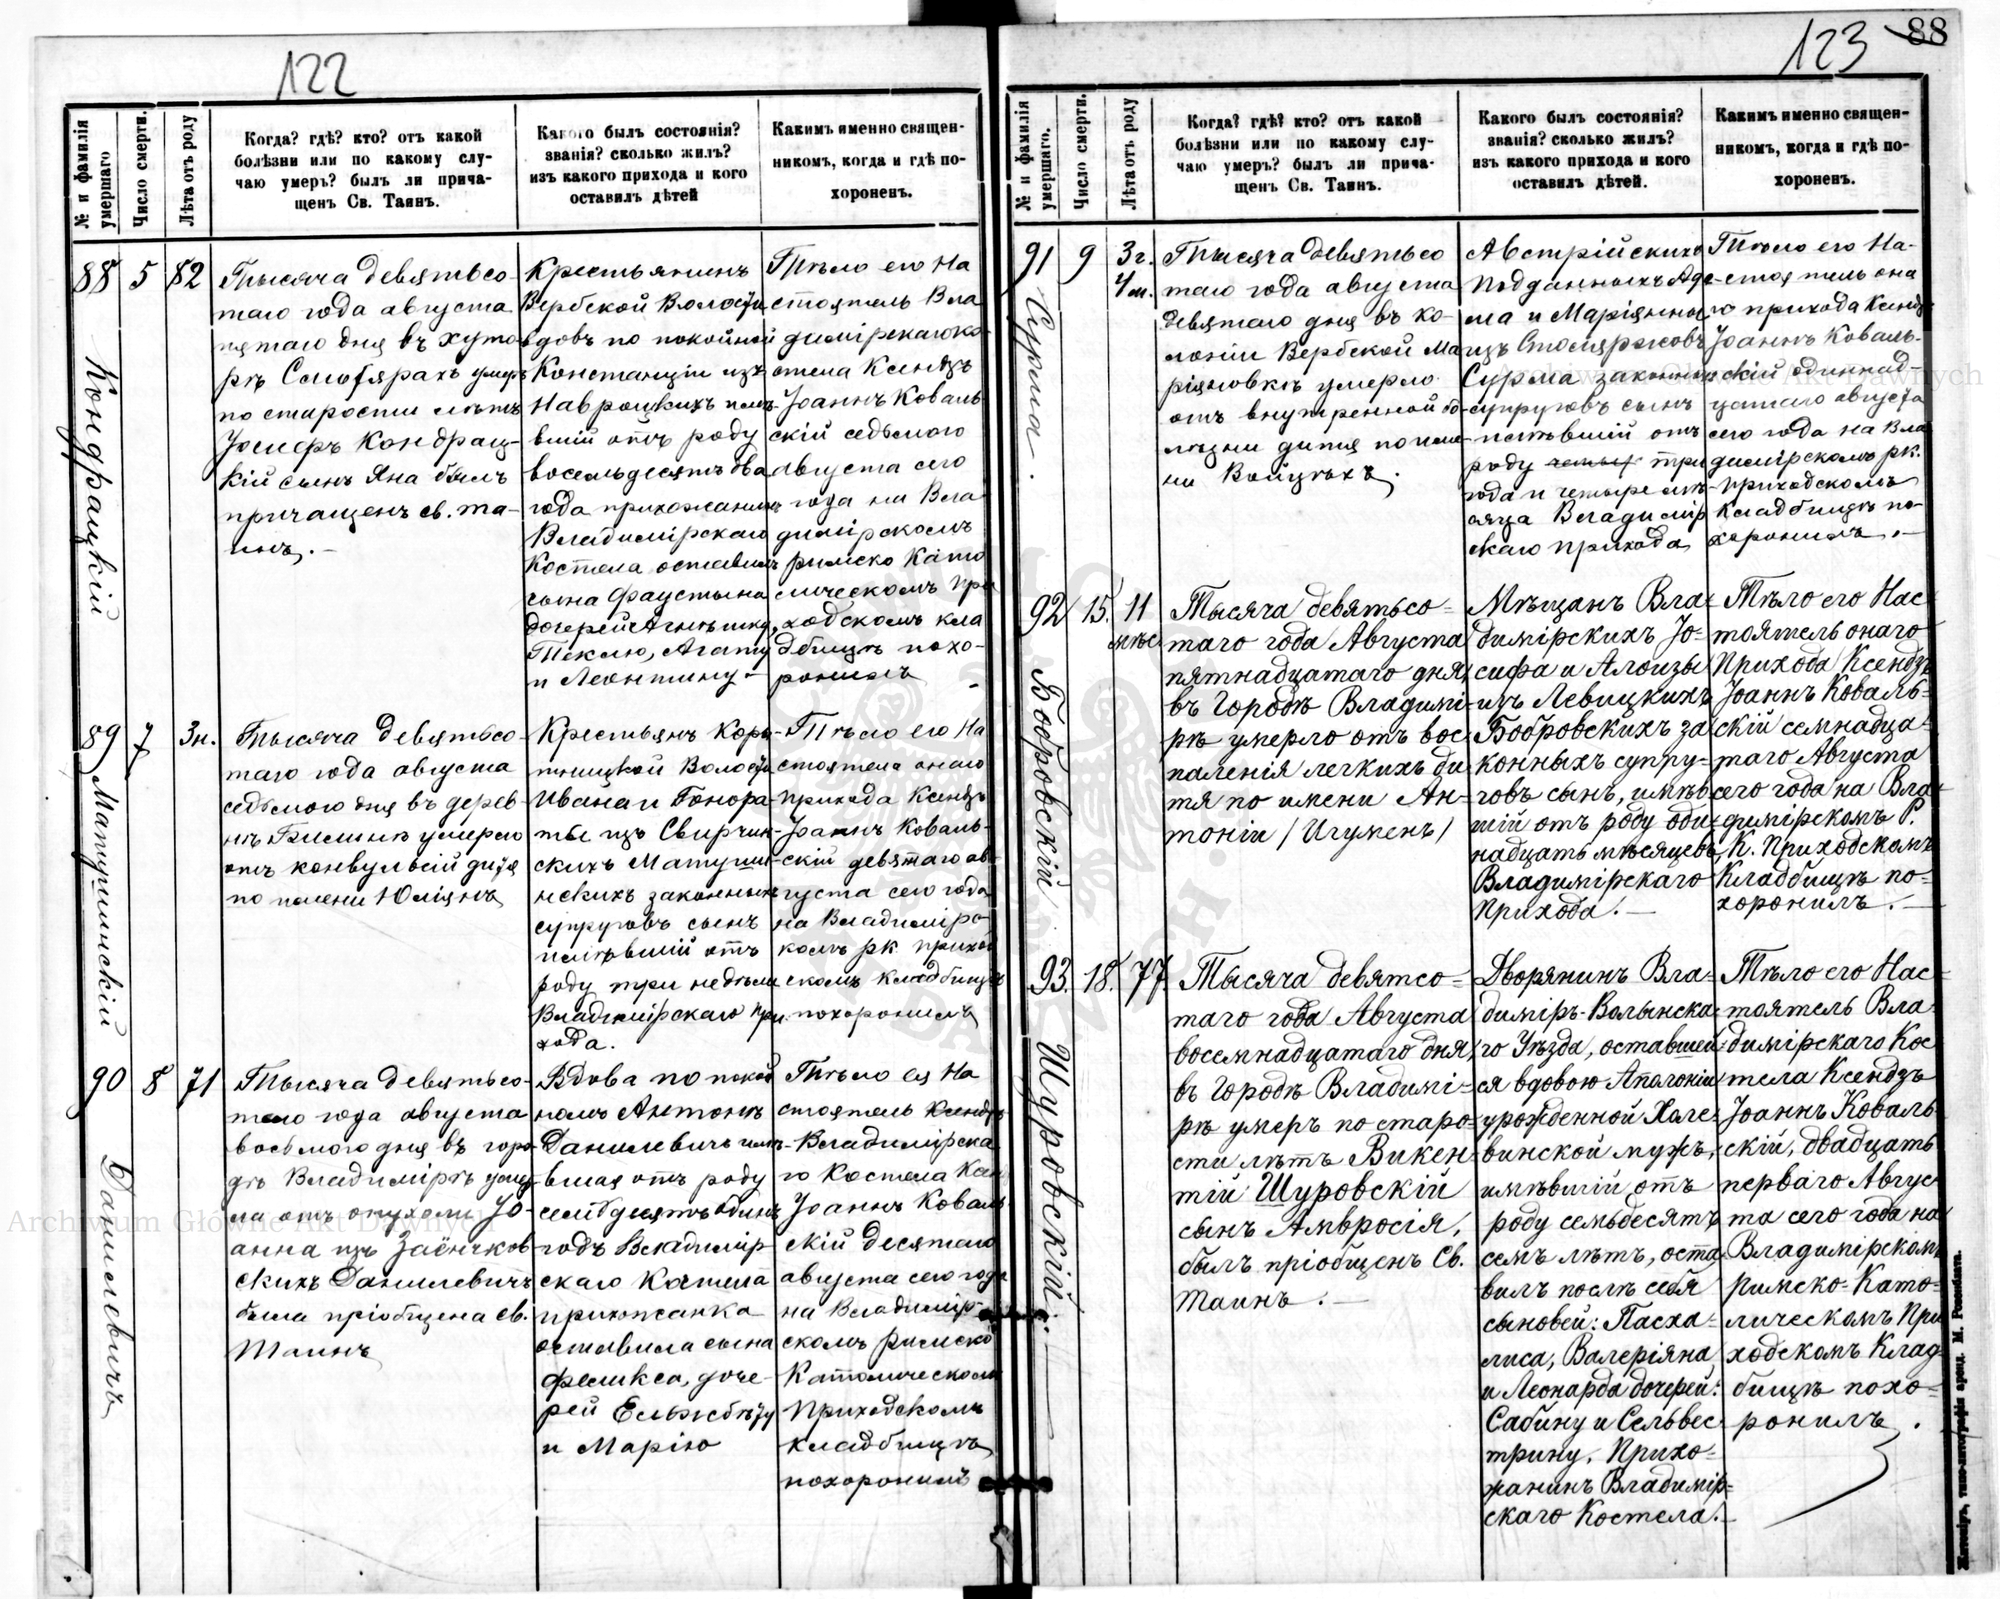 122
№ и фамилія умершаго
Число смерти.
Лѣта отъ роду
Когда? гдѣ? кто? отъ какой
болѣзни или по какому слу-
чаю умеръ? былъ ли прича-
щенъ Св. Таинъ.
Какого былъ состоянія?
званія? сколько жилъ?
изъ какого прихода и кого
оставилъ дѣтей
Какимъ именно священ-
никомъ, когда и гдѣ по-
хороненъ.
88
Кондрацкій
5
82
Тысяча девятьсо-
таго года августа
пятаго дня въ хуто-
рѣ Столярахъ умеръ
по старости лѣтъ
Іосифъ Кондрац-
кій сынъ Яна былъ
причащенъ св. та-
инъ.-
Крестьянинъ
Вербской Волости
вдовъ по покойной
Констанціи изъ
Навроцкихъ имѣ-
вшій отъ роду
восемьдесятъ два
года прихожанинъ
Владимірскаго
Костела оставилъ
сына Фаустына
дочерей Агнѣшку,
Теклю, Агату
и Леонтину-
Тѣло его На
стоятель Вла
димірскаго ко-
стела Ксендзъ
Іоаннъ Коваль-
скій седьмого
августа сего
года на Вла
димірскомъ
римско Като
лическомъ при
ходскомъ кла
дбищѣ похо-
ронилъ
89
Матушинскій
7
3н.
Тысяча девятьсо-
таго года августа
седьмого дня въ дерев-
нѣ умерло
отъ конвульсій дитя
по имени Юліянъ
Крестьянъ Коры-
тницкой Волости
Ивана и Гонора-
ты изъ Свирчин-
скихъ Матуши-
нскихъ законныхъ
супруговъ сынъ
имѣвшій отъ
роду три недѣли
Владимірскаго при
хода.
Тѣло его На
стоятель онаго
прихода Ксендзъ
Іоаннъ Коваль-
скій девятаго ав-
густа сего года
на Владимірс-
комъ рк приход
скомъ кладбищѣ
похоронилъ
90
Данилевичъ
8
71
Тысяча девятьсо-
таго года августа
восьмого дня въ горо-
дѣ Владимірѣ умер-
ла отъ опухоли Іо-
анна изъ Заёнчков
скихъ Данилевичъ
была пріобщена св.
Таинъ
Вдова по покой
номъ Антонѣ
Данилевичъ имѣ-
вшая отъ роду
семьдесятъ одинъ
годъ Владимір
скаго Костела
прихожанка
оставила сына
Феликса, доче-
рей Ельжбѣту
и Марію
Тѣло ея На
стоятель Ксендзъ
Владимірска-
го Костела Кан
Іоаннъ Коваль
скій десятаго
августа сего года
на Владимір-
скомъ римско
Католическомъ
Приходскомъ
кладбищѣ
похоронилъ
123
88
№ и фамилія умершаго.
Число смерти.
Лѣта отъ роду
Когда? гдѣ? кто? отъ какой
болѣзни или по какому слу-
чаю умеръ? былъ ли прича-
щенъ Св. Таинъ.
Какого былъ состоянія?
званія? сколько жилъ?
изъ какого прихода и кого
оставилъ дѣтей.
Какимъ именно священ-
никомъ, когда и гдѣ по-
хороненъ.
91
Сурма.
9
3г.
4м.
Тысяча девятьсо
таго года августа
девятаго дня въ ко-
лоніи Вербской Ма
ріяновкѣ умерло
отъ внутренной бо-
лѣзни дитя по име-
ни Войцѣхъ.
Австрійскихъ
Подданныхъ Ада-
ма и Маріянны
изъ Столяржовъ
Сурма законныхъ
супруговъ сынъ
имѣвшій отъ
роду три
года и четыре мѣ-
сяца Владимір
скаго прихода
Тѣло его На-
стоятель она
го прихода Ксендзъ
Іоаннъ Коваль-
скій одиннад-
цатаго августа
сего года на Вла
димірскомъ рк.
приходскомъ
Кладбищѣ по-
хоронилъ.-
92
Бобровскій
15.
11
мѣс.
Тысяча девятьсо-
таго года Августа
пятнадцатаго дня
въ Городѣ Владимі-
рѣ умерло отъ вос-
паленія легкихъ ди
тя по имени Ан-
тоній /Игуменъ/
Мѣщанъ Вла-
димірскихъ Іо-
сифа и Алоизы
изъ Левицкихъ
Бобровскихъ за
конныхъ супру-
говъ сынъ, имѣв
шій отъ роду оди-
надцать мѣсяцевъ,
Владимірскаго
Прихода.-
Тѣло его Нас-
тоятель онаго
Прихода Ксендзъ
Іоаннъ Коваль-
скій семнадца-
таго Августа
сего года на Вла-
димірскомъ Р.
К. Приходскомъ
Кладбищѣ по-
хоронилъ.-
93.
Шуровскій.
18.
77.
Тысяча девятсо-
таго года Августа
восемнадцатаго дня
въ Городѣ Владимі-
рѣ умеръ по старо-
сти лѣтъ Викен-
тій Шуровскій
сынъ Амвросія,
былъ пріобщенъ Св.
Таинъ.-
Дворянинъ Вла-
диміръ-Волынска-
го Уѣзда, оставшей-
ся вдовою Аполоніи
урожденной Хале-
винской мужъ,
имѣвшій отъ
роду семьдесятъ
семъ лѣтъ, оста-
вилъ послѣ себя
сыновей: Пасха-
лиса, Валеріяна
и Леонарда дочерей:
Сабину и Сельвес-
трину. Прихо-
жанинъ Владимір-
скаго Костела.-
Тѣло его Нас-
тоятель Вла-
димірскаго Кос
тела Ксендзъ
Іоаннъ Коваль-
скій, двадцать
перваго Авгус
та сего года на
Владимірскомъ
Римско-Като-
лическомъ При
ходскомъ Клад-
бищѣ похо-
ронилъ.
Житомір, типо-литографія аренд. М. Розенблата.
Archiwum Główne Akt Dawnych
Archiwum Główne Akt Dawnych